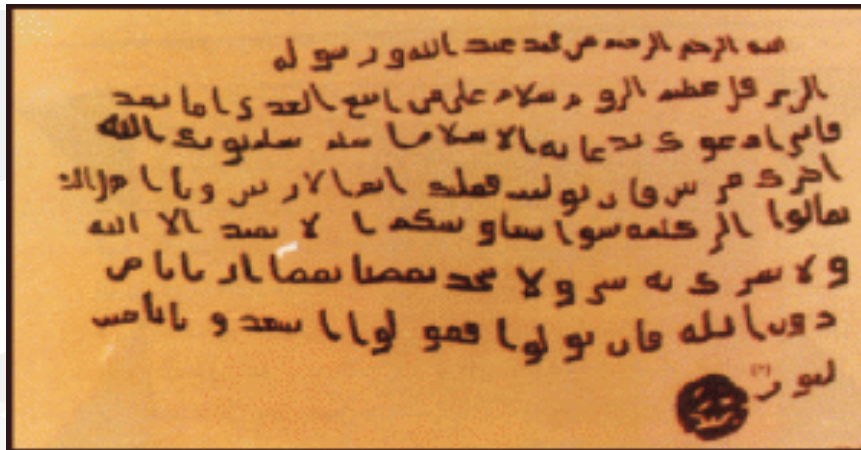 الله الرحمن الرحيم من محمد عبد الله ورسوله
الى هرقل عظيم الروم سلام على من اتبع الهدى اما بعد
فانى ادعوك بدعاية الاسلام اسلم تسلم يوتك الله
اجرك مرتين فان توليت فعليك اثم الاريسين ويا اهل الك
تعالوا الى كلمة سوا بيننا وبينكم ا لا نعبد الا الله
ولا نشرك به شى ولا يتخذ بعضنا بعضا اربابا من
دون الله فان تولوا فقولوا اشهدوا بانا مس
لمون